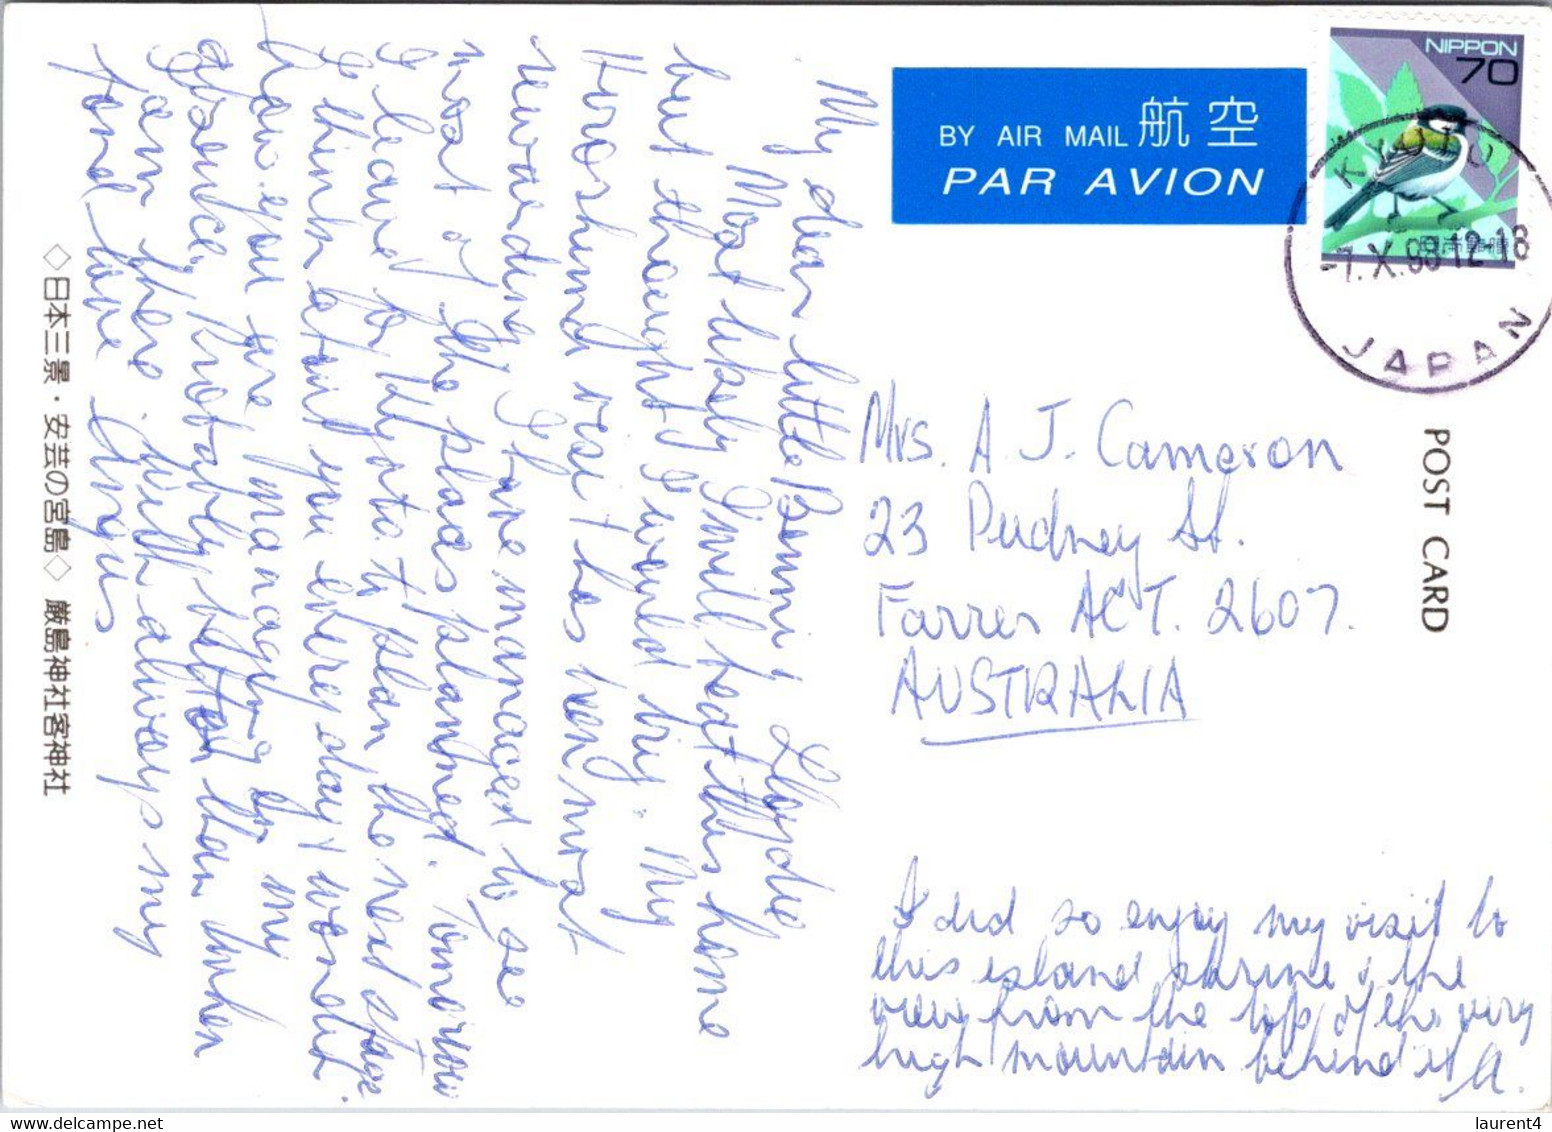 My dear little Bonnie, Lloydie
Most likely I will beat this home
but thought I would try. My
Hiroshima visit has been most
rewarding. I have managed to see
most of the places planned. Tomorrow
I leave for Kyoto to plan the next stage.
I think about you every day & wonder
how you are managing in my
absence, Probably better than when
I am there. With always my
fond love Angus
◇日本三景・安芸の宮島◇ 厳島神社客神社
BY AIR MAIL 航空
PAR AVION
NIPPON
70
日本郵便
KYOTO
-7.X.98 12-18
JAPAN
POST CARD
Mrs. A J. Cameron
23 Pudney St.
Farrer ACT. 2607.
AUSTRALIA
I did so enjoy my visit to
this island shrine & the
view from the top of the very
high mountain behind it A.
laurent4